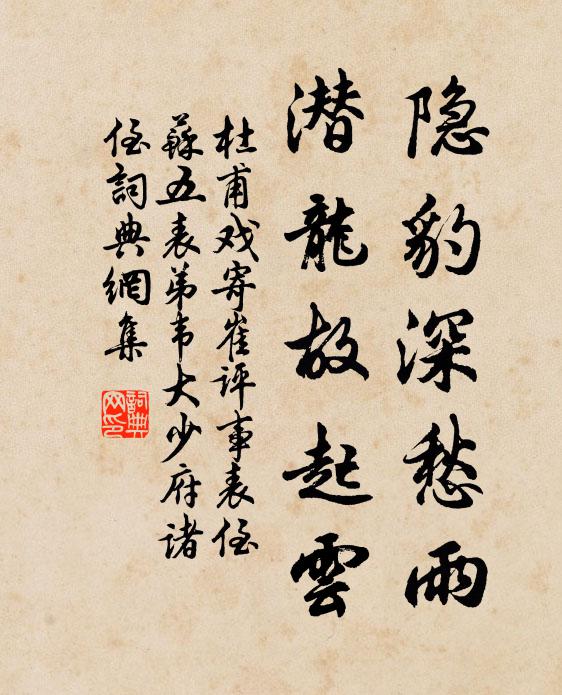 隐豹深愁雨
潜龍故起雲
杜甫戏寄崔评事表侄
蘇五表弟韦大少府诸
侄詞典網集
詞典
网印